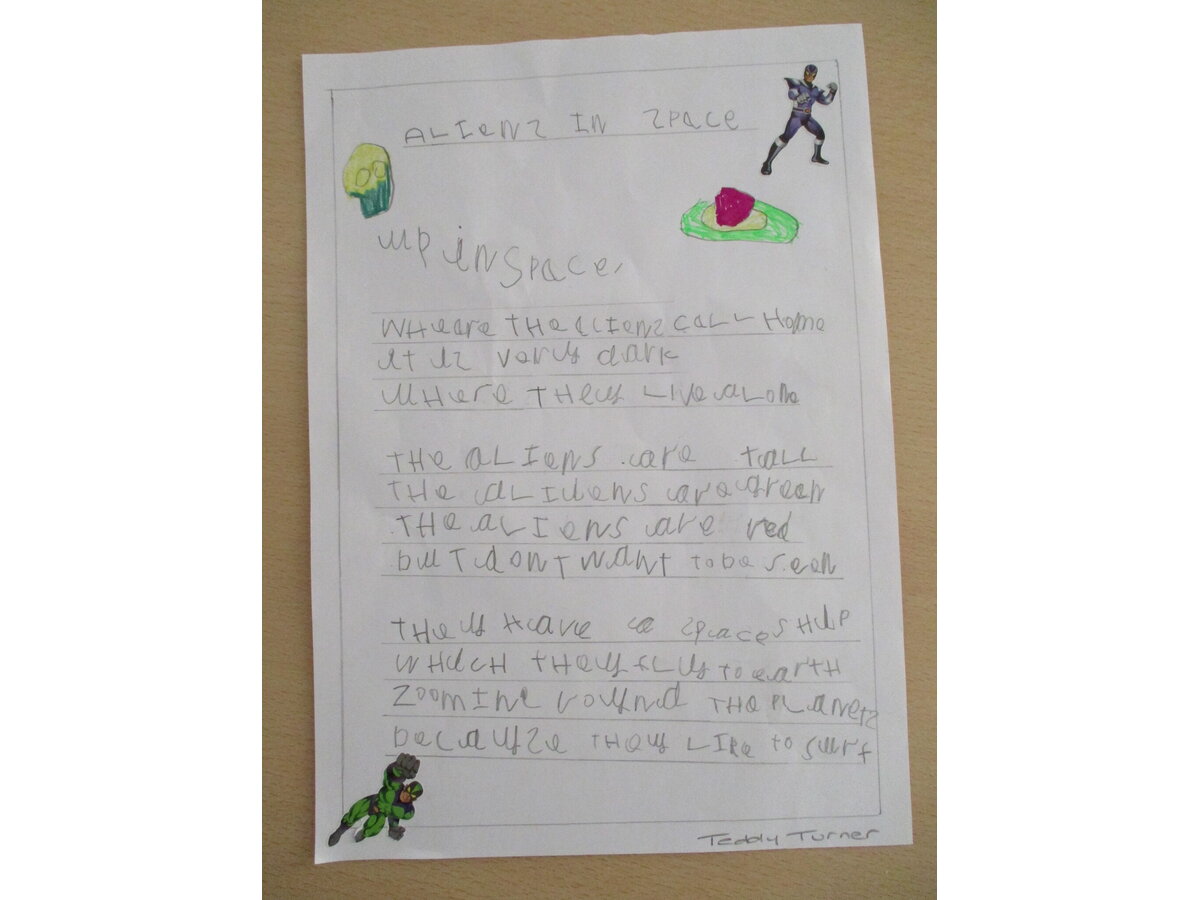 ALIENS IN SPACE
up in space,
Wheare the aliens call Home
it is very dark
where they live alone
the aliens are tall
the alidens are green
the aliens are red
but dont want to be seen
they have a spaceship
which they fly to earth
zoomine round the planets
because they like to surf
Teddy Turner